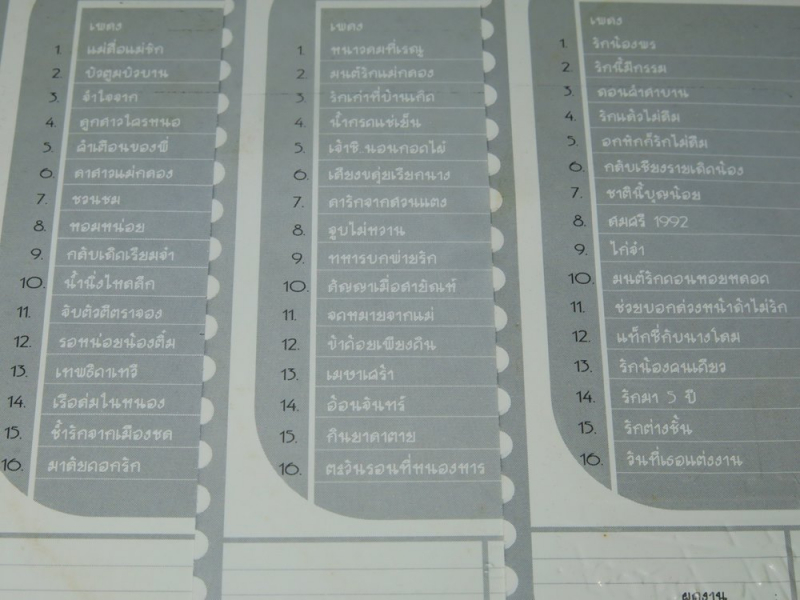 เพลง
1. แม่สื่อแม่รัก
2. บัวตูมบัวบาน
3. จำใจจาก
4. ลูกสาวใครหนอ
5. ลำเตือนของพี่
6. ลาสาวแม่กลอง
7. ชวนชม
8. หอมหน่อย
9. กลับเถิดเรียมจ๋า
10. น้ำนิ่งไหลลึก
11. จับตัวตีตราจอง
12. รอหน่อยน้องติ๋ม
13. เทพธิดาเทวี
14. เรือล่มในหนอง
15. ช้ำรักจากเมืองชล
16. มาลัยดอกรัก
เพลง
1. หนาวลมที่เรณู
2. มนต์รักแม่กลอง
3. รักเก่าที่บ้านเกิด
4. น้ำกรดแช่เย็น
5. เจ้าชิ.นอนกอดไผ่
6. เสียงขลุ่ยเรียกนาง
7. ลารักจากสวนแตง
8. จูบไม่หวาน
9. ทหารบกพ่ายรัก
10. สัญญาเมื่อสายัณห์
11. จดหมายจากแม่
12. ข้าด้อยเพียงดิน
13. เมษาเศร้า
14. อ้อนจันทร์
15. กินยาตาย
16. ตะวันรอนที่หนองหาร
เพลง
1. รักน้องพร
2. รักนี้มีกรรม
3. ดอนลำดาบาน
4. รักแล้วไม่ลืม
5. อกหักก็รักไม่ลืม
6. กลับเชียงรายเถิดน้อง
7. ชาตินี้บุญน้อย
8. สมศรี 1992
9. ไก่จ๋า
10. มนต์รักดอนหอยหลอด
11. ช่วยบอกด้วงหน้าดำไม่รัก
12. แท็กซี่กับนางโลม
13. รักน้องคนเดียว
14. รักมา 5 ปี
15. รักต่างชั้น
16. วันที่เธอแต่งงาน
ผลงาน